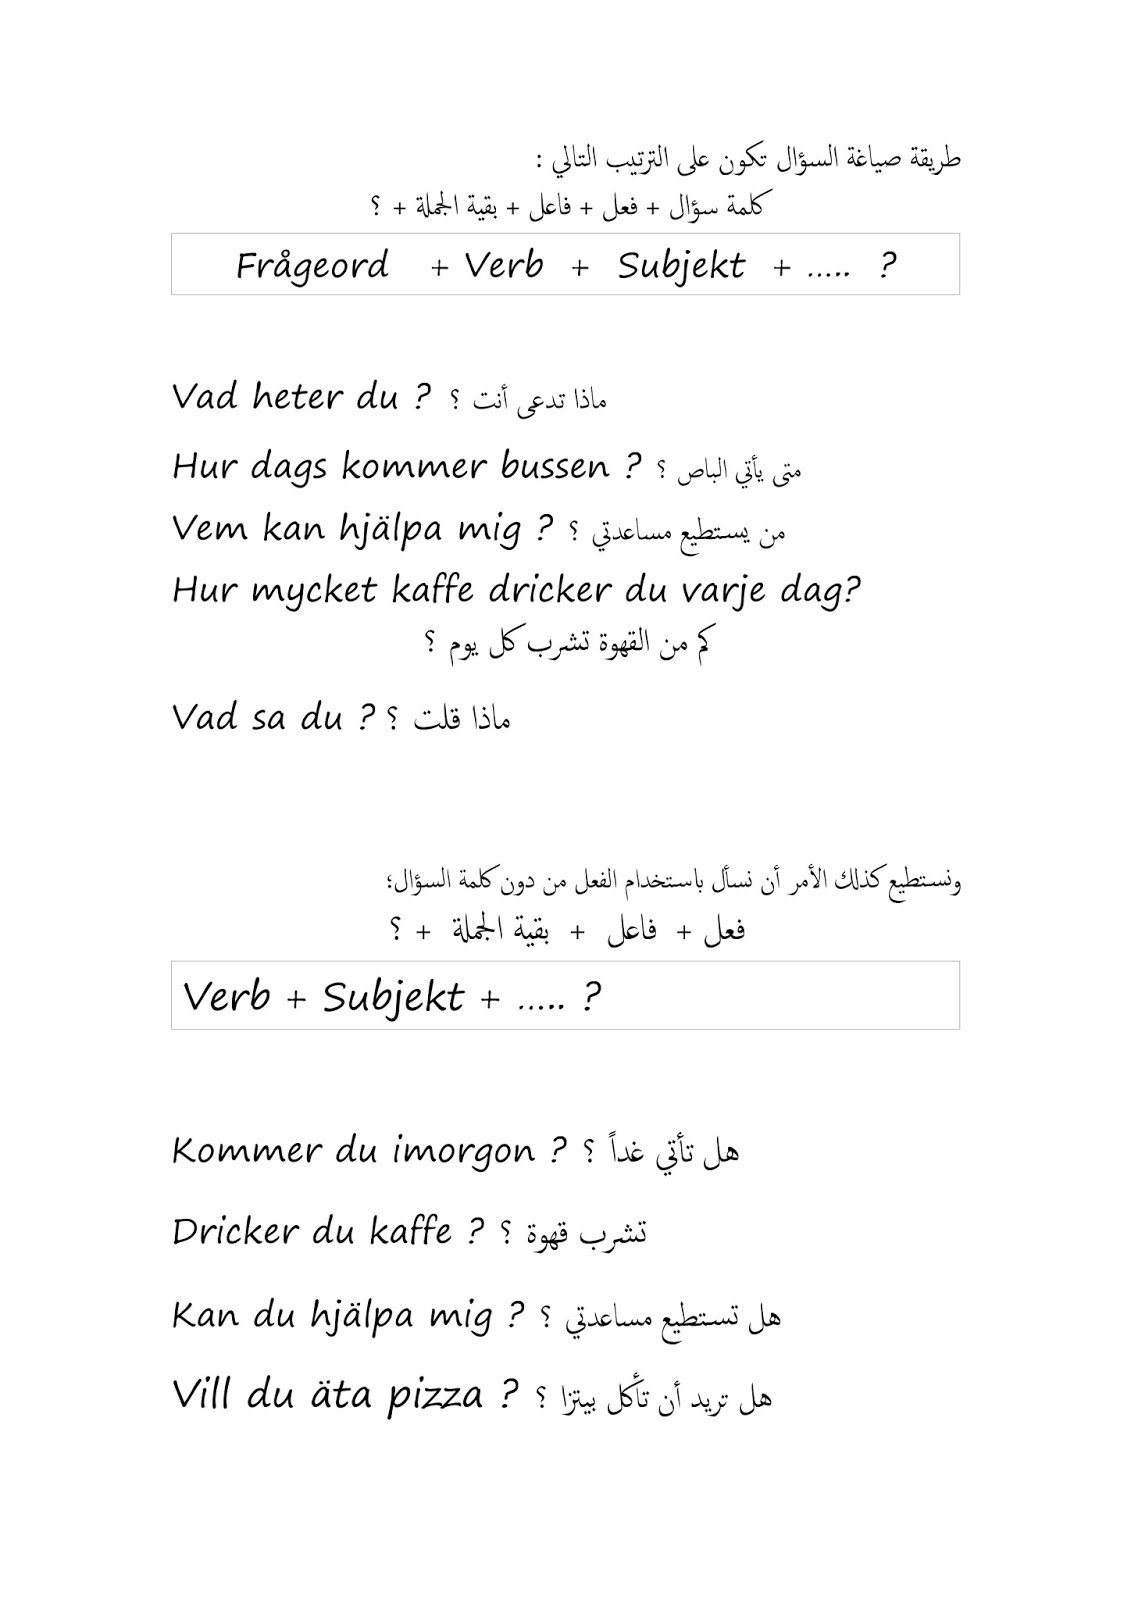 طريقة صياغة السؤال تكون على الترتيب التالي :
كلمة سؤال + فعل + فاعل + بقية الجملة + ؟
Frågeord + Verb + Subjekt + ..... ?
Vad heter du ? ماذا تدعى أنت ؟
Hur dags kommer bussen ? متى يأتي الباص ؟
Vem kan hjälpa mig ? من يستطيع مساعدتي ؟
Hur mycket kaffe dricker du varje dag?
كم من القهوة تشرب كل يوم ؟
Vad sa du ? ماذا قلت ؟
ونستطيع كذلك الأمر أن نسأل باستخدام الفعل من دون كلمة السؤال؛
فعل + فاعل + بقية الجملة + ؟
Verb + Subjekt + ..... ?
Kommer du imorgon ? هل تأتي غداً ؟
Dricker du kaffe ? تشرب قهوة ؟
Kan du hjälpa mig ? هل تستطيع مساعدتي ؟
Vill du äta pizza ? هل تريد أن تأكل بيتزا ؟